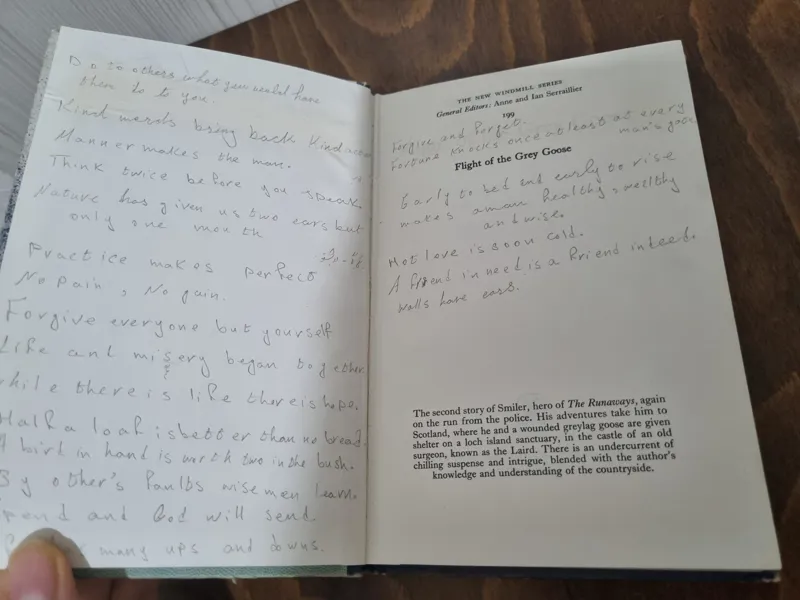 Do to others what you would have
them do to you.
Kind words bring back kind
Manner makes the man.
Think twice before you speak
Nature has given us two ears but
only one mouth
Practice makes perfect
No pain, No gain.
Forgive everyone but yourself
Life and misery began together.
while there is life there is hope.
Half a loaf is better than no bread.
A bird in hand is worth two in the bush.
By other's faults wise men learn.
Spend and God will send.
many ups and downs.
THE NEW WINDMILL SERIES
General Editors: Anne and Ian Serraillier
199
Forgive and Forget.
Fortune knocks once at least at every
man's gate
Flight of the Grey Goose
Early to bed and early to rise
makes a man healthy, wealthy
and wise.
Hot love is soon cold.
A friend in need is a friend indeed.
walls have ears.
The second story of Smiler, hero of The Runaways, again
on the run from the police. His adventures take him to
Scotland, where he and a wounded greylag goose are given
shelter on a loch island sanctuary, in the castle of an old
surgeon, known as the Laird. There is an undercurrent of
chilling suspense and intrigue, blended with the author's
knowledge and understanding of the countryside.